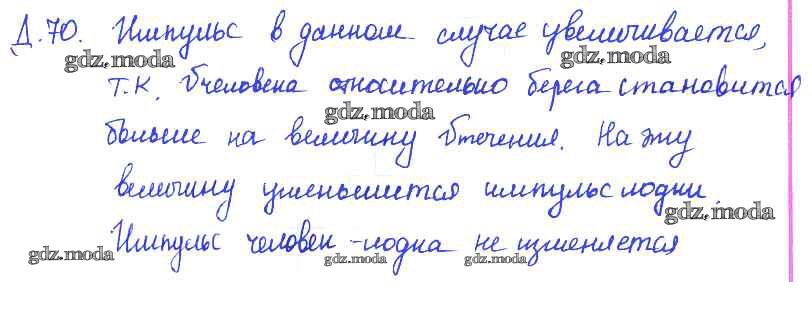 Д.70. Импульс в данном случае увеличивается,
gdz.moda gdz.moda
т.к. υчеловека относительно берега становится
gdz.moda
больше на величину υтечения. На эту
величину уменьшится импульс лодки.
gdz.moda
Импульс человек-лодка не изменяется
gdz.moda gdz.moda gdz.moda